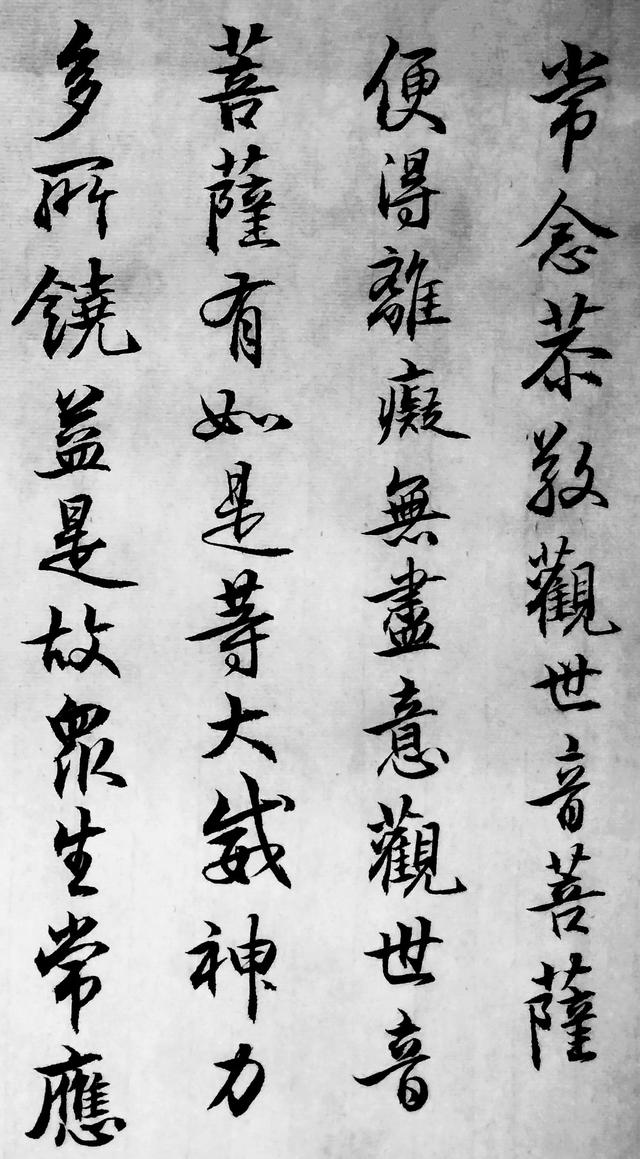 常念恭敬觀世音菩薩
便得離癡無盡意觀世音
菩薩有如是等大威神力
多所饒益是故眾生常應